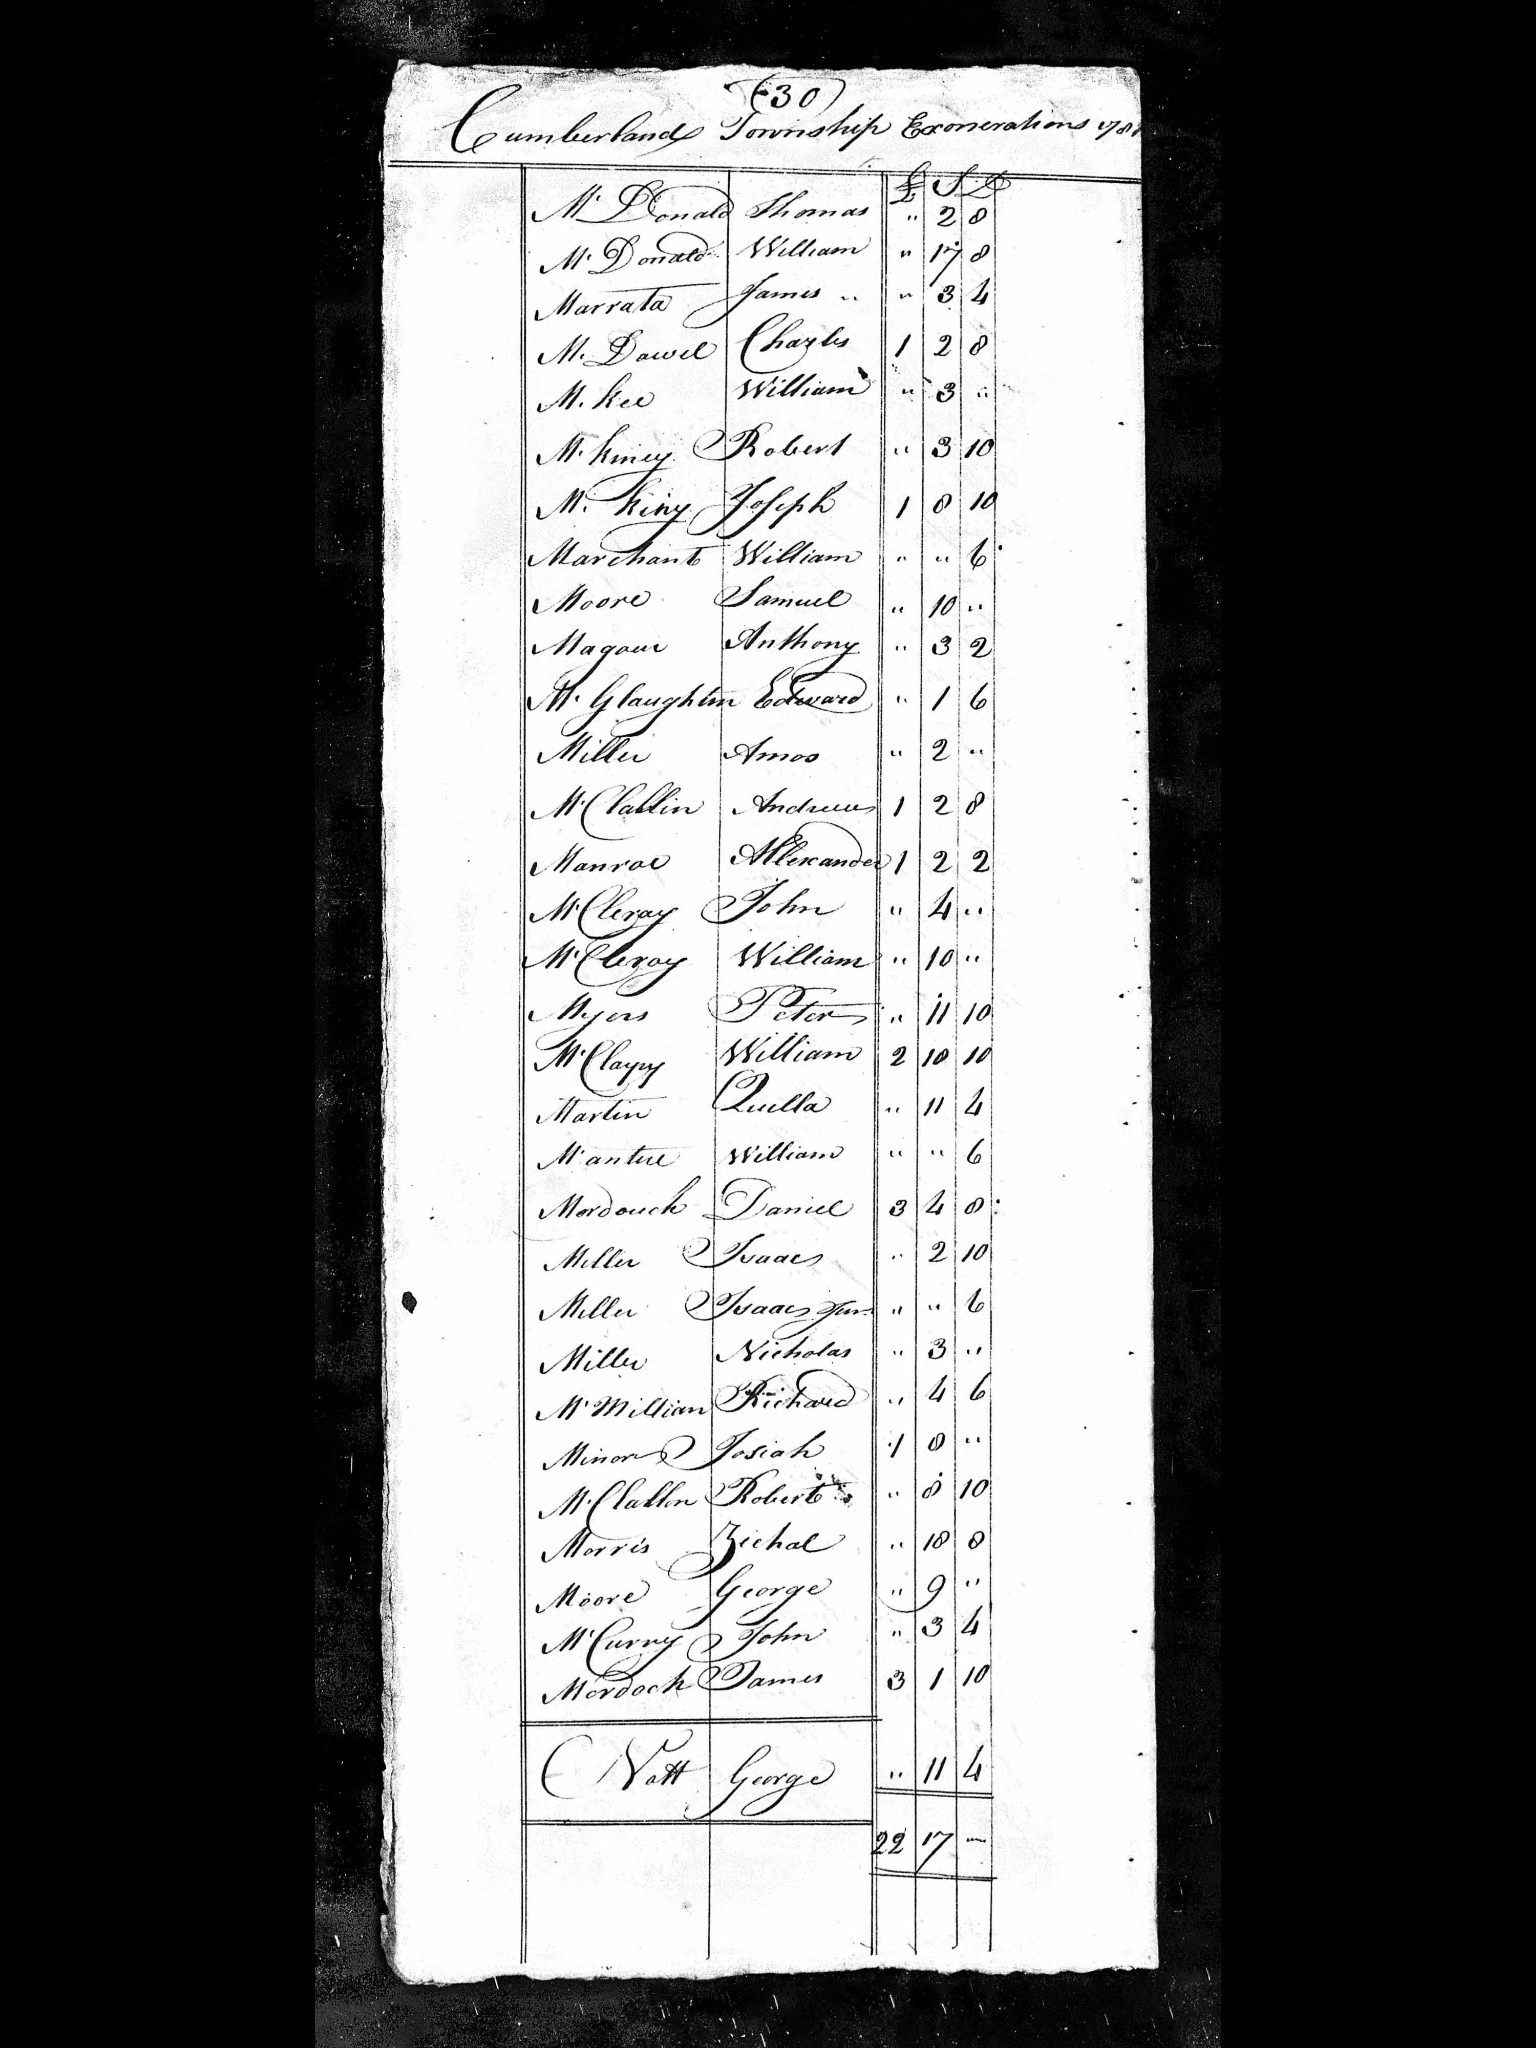 (30)
Cumberland Township Exonerations 178
£ S D
Mc Donald Thomas " 2 8
Mc Donald William " 17 8
Marrata James " " 3 4
Mc. Dowel Charles 1 2 8
Mc. Kee William " 3 "
Mc. Kiney Robert " 3 10
Mc. Kiny Joseph 1 8 10
Marchant William " " 6
Moore Samuel " 10 "
Magour Anthony " 3 2
Mc. Glaughlin Edward " 1 6
Miller Amos " 2 "
Mc Clallin Andrew 1 2 8
Manroe Allexander 1 2 2
Mc Cleray John " 4 "
Mc Cleroy William " 10 "
Myers Peter " 11 10
Mc William 2 10 10
Martin Quilla " 11 4
William " " 6
Mordouch Daniel 3 4 8
Miller Isaac " 2 10
Miller Isaac Jun. " " 6
Miller Nicholas " 3 "
Mc Millian Richard " 4 6
Minor Josiah 1 8 "
Mc. Clallin Robert " 8 10
Morris Zichal " 18 8
Moore George " 9 "
Mc Curry John " 3 4
Mordock James 3 1 10
Nott George " 11 4
22 17 —